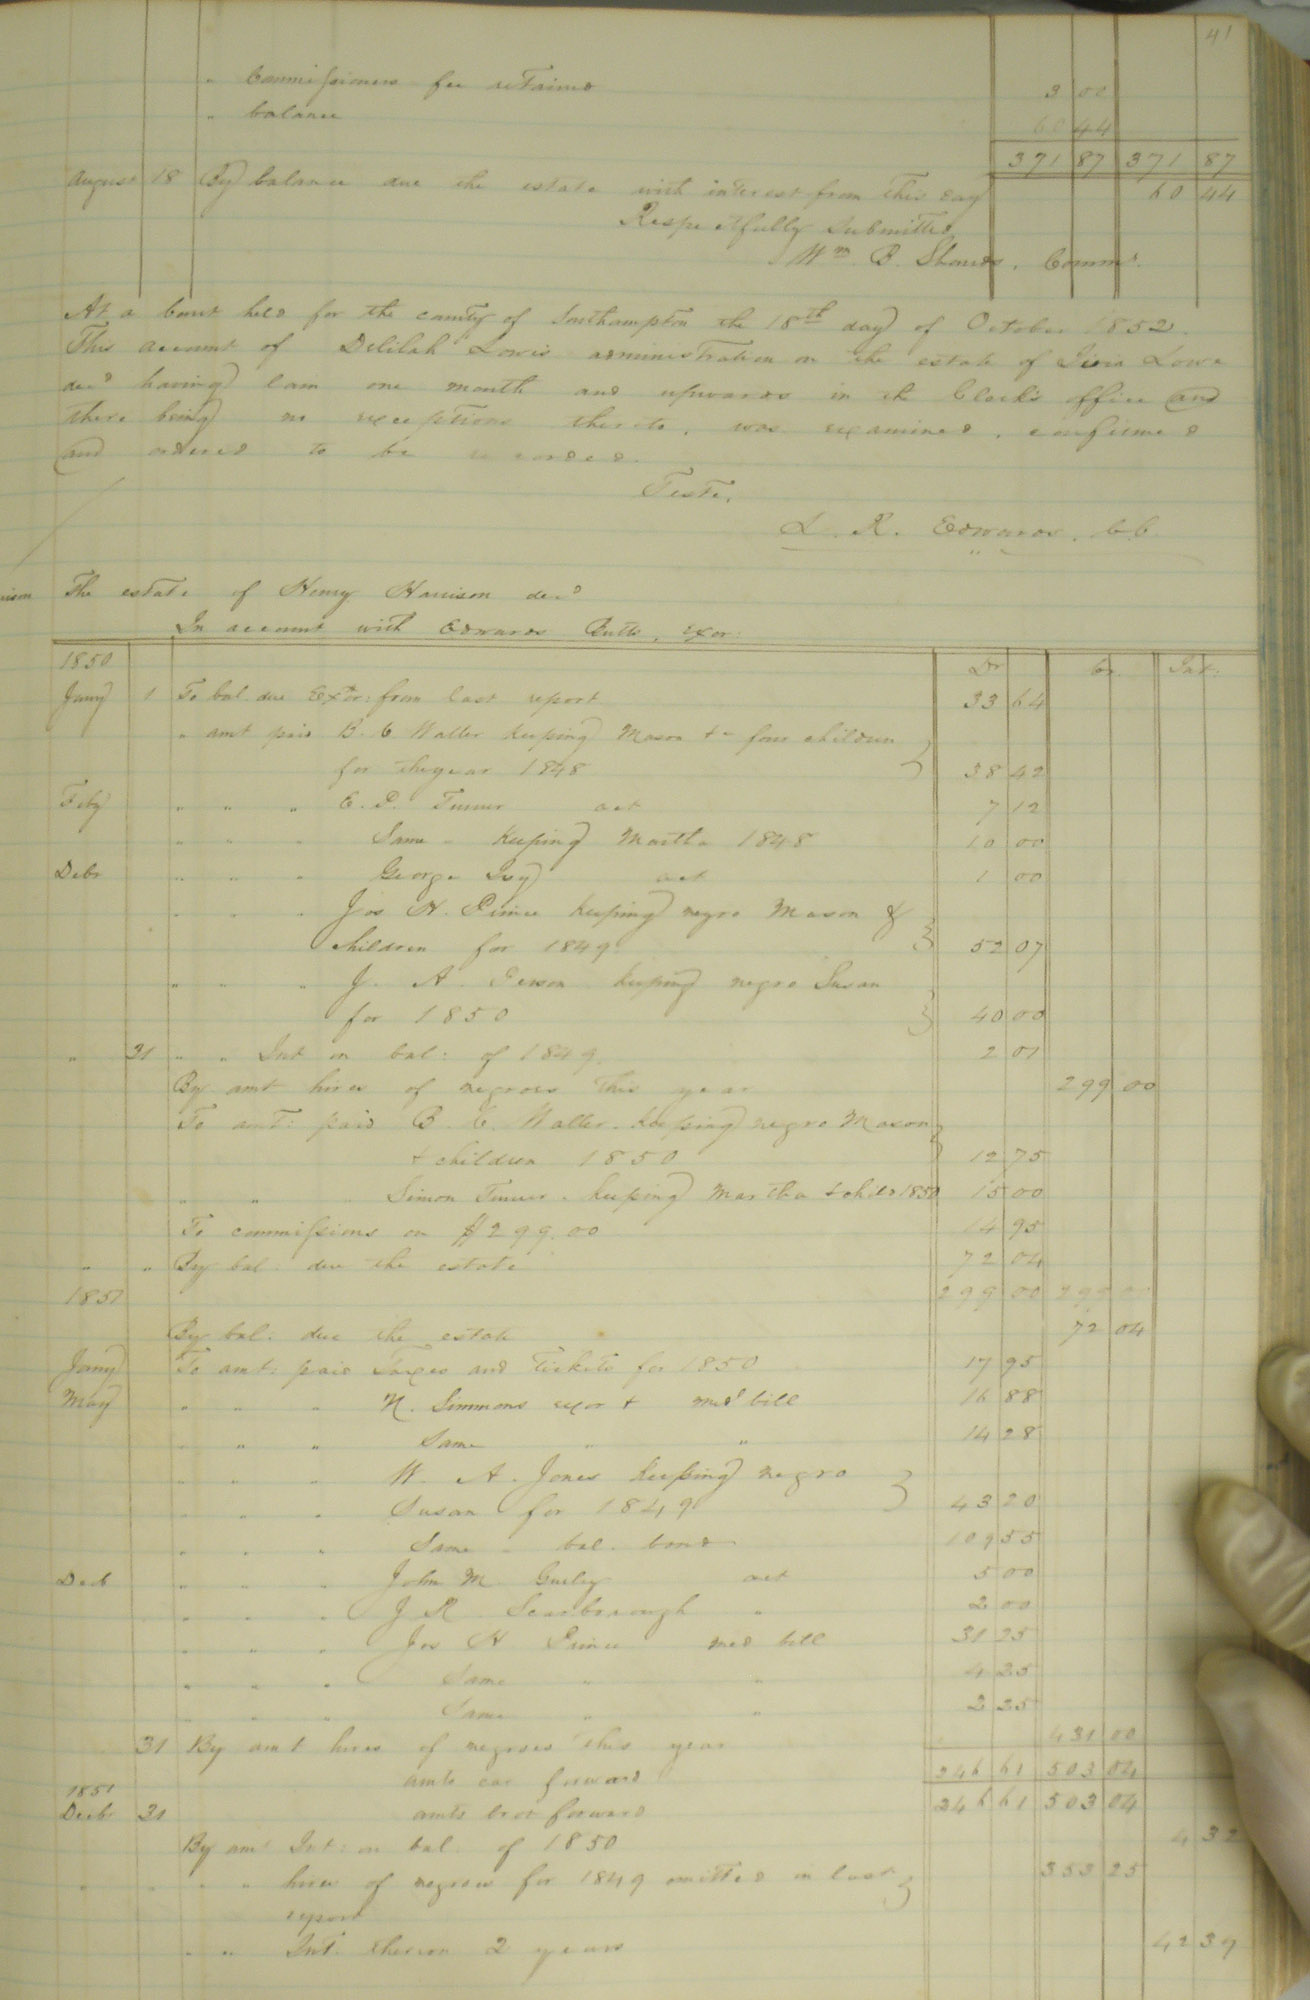 41
" Commissioners fee retained 3 00
" balance 60 44
371 87 371 87
August 18 By balance due the estate with interest from this day 60 44
Respectfully Submitted
Wm. B. Shands. Commr.
At a Court held for the county of Southampton the 18th day of October 1852.
This account of Delilah Lowe's administration on the estate of Lowe
decd having lain one month and upwards in the Clerk's office and
there being no exceptions thereto, was examined, confirmed
and ordered to be recorded.
Teste,
L. R. Edwards. C.C.
The estate of Henry Harrison decd
In account with Edwards Butts, exor.
1850 Dr Cr. Int:
Jany 1 To bal. due Extor: from last report 33 64
" amt paid B. C Waller keeping Mason & four children
for the year 1848 38 42
Feby " " " E. P. Turner act 7 12
" " " Same " keeping Martha 1848 10 00
Debr " " " George Ivy act 1 00
" " " Jos H. Prince keeping negro Mason &
children for 1849 52 07
" " " J. A. Person keeping negro Susan
for 1850 40 00
" 31 " " Int on bal: of 1849. 2 01
By amt hires of negroes this year 299 00
To amt: paid B. C. Waller. keeping negro Mason
& children 1850 12 75
" " " Simon Turner - keeping Martha & child 1850 15 00
To commissions on $299.00 14 95
" " By bal: due the estate 72 04
1851 299 00 299 00
By bal: due the estate 72 04
Jany To amt: paid Taxes and tickets for 1850 17 95
May " " " N. Simmons exor & med bill 16 88
" " " Same " " 14 28
" " " W. A. Jones keeping negro
" " " Susan for 1849 43 20
" " " Same " bal. bond 109 55
Decb " " " John M. Gurley act 5 00
" " " J R. Scarborough " 2 00
" " " Jos H Prince med bill 31 25
" " " Same " " 4 25
" " " Same " " 2 25
31 By amt hires of negroes this year 431 00
amts car forward 246 61 503 04
1851
Decbr 31 amts brot forward 246 61 503 04
By amt Int: on bal: of 1850 4 32
" " " " hires of negroes for 1849 omitted in last 353 25
report
" " Int. thereon 2 years 42 39